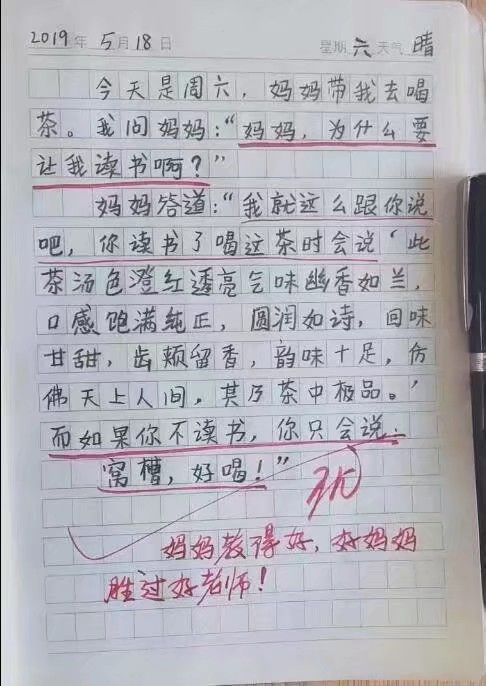 2019年 5月18日 星期六 天气 晴
今天是周六，妈妈带我去喝
茶。我问妈妈：“妈妈，为什么要
让我读书啊？”
妈妈答道：“我就这么跟你说
吧，你读书了喝这茶时会说‘此
茶汤色澄红透亮气味幽香如兰，
口感饱满纯正，圆润如诗，回味
甘甜，齿颊留香，韵味十足，仿
佛天上人间，其乃茶中极品。’
而如果你不读书，你只会说：
窝槽，好喝！”
妈妈教得好，好妈妈
胜过好老师！